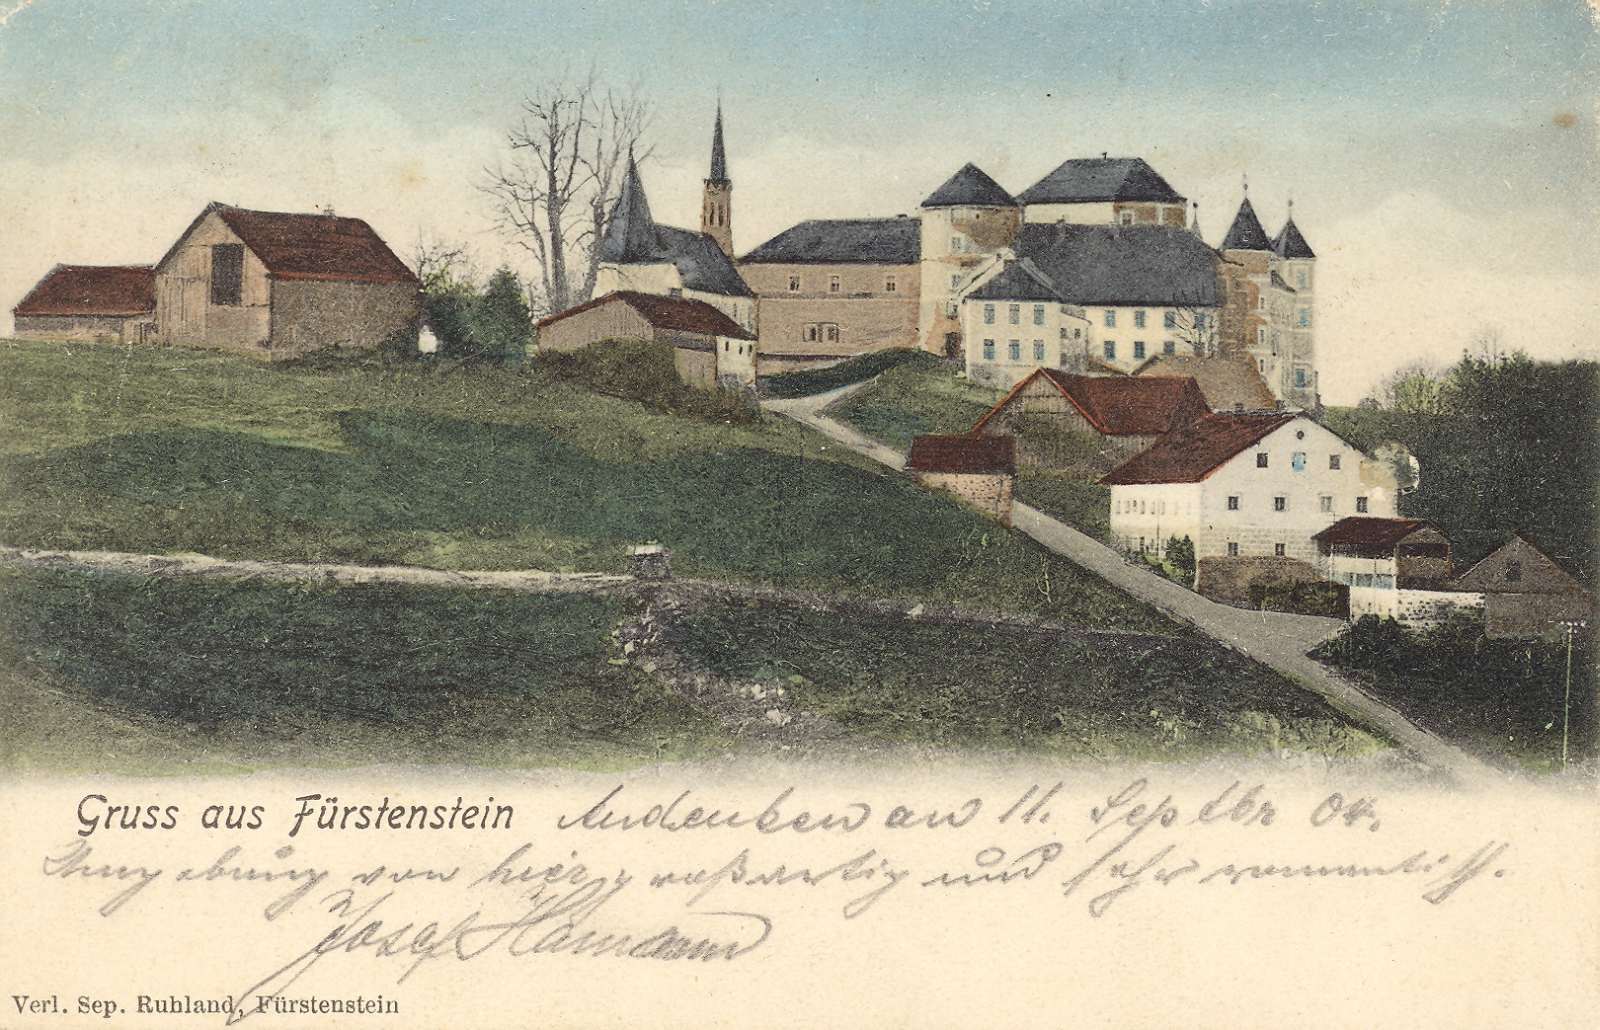 Gruss aus Fürstenstein Andenken an 11. Septbr 04.
Umgebung von hier großartig und sehr romantisch.
Josef Hamann
Verl. Sep. Ruhland, Fürstenstein